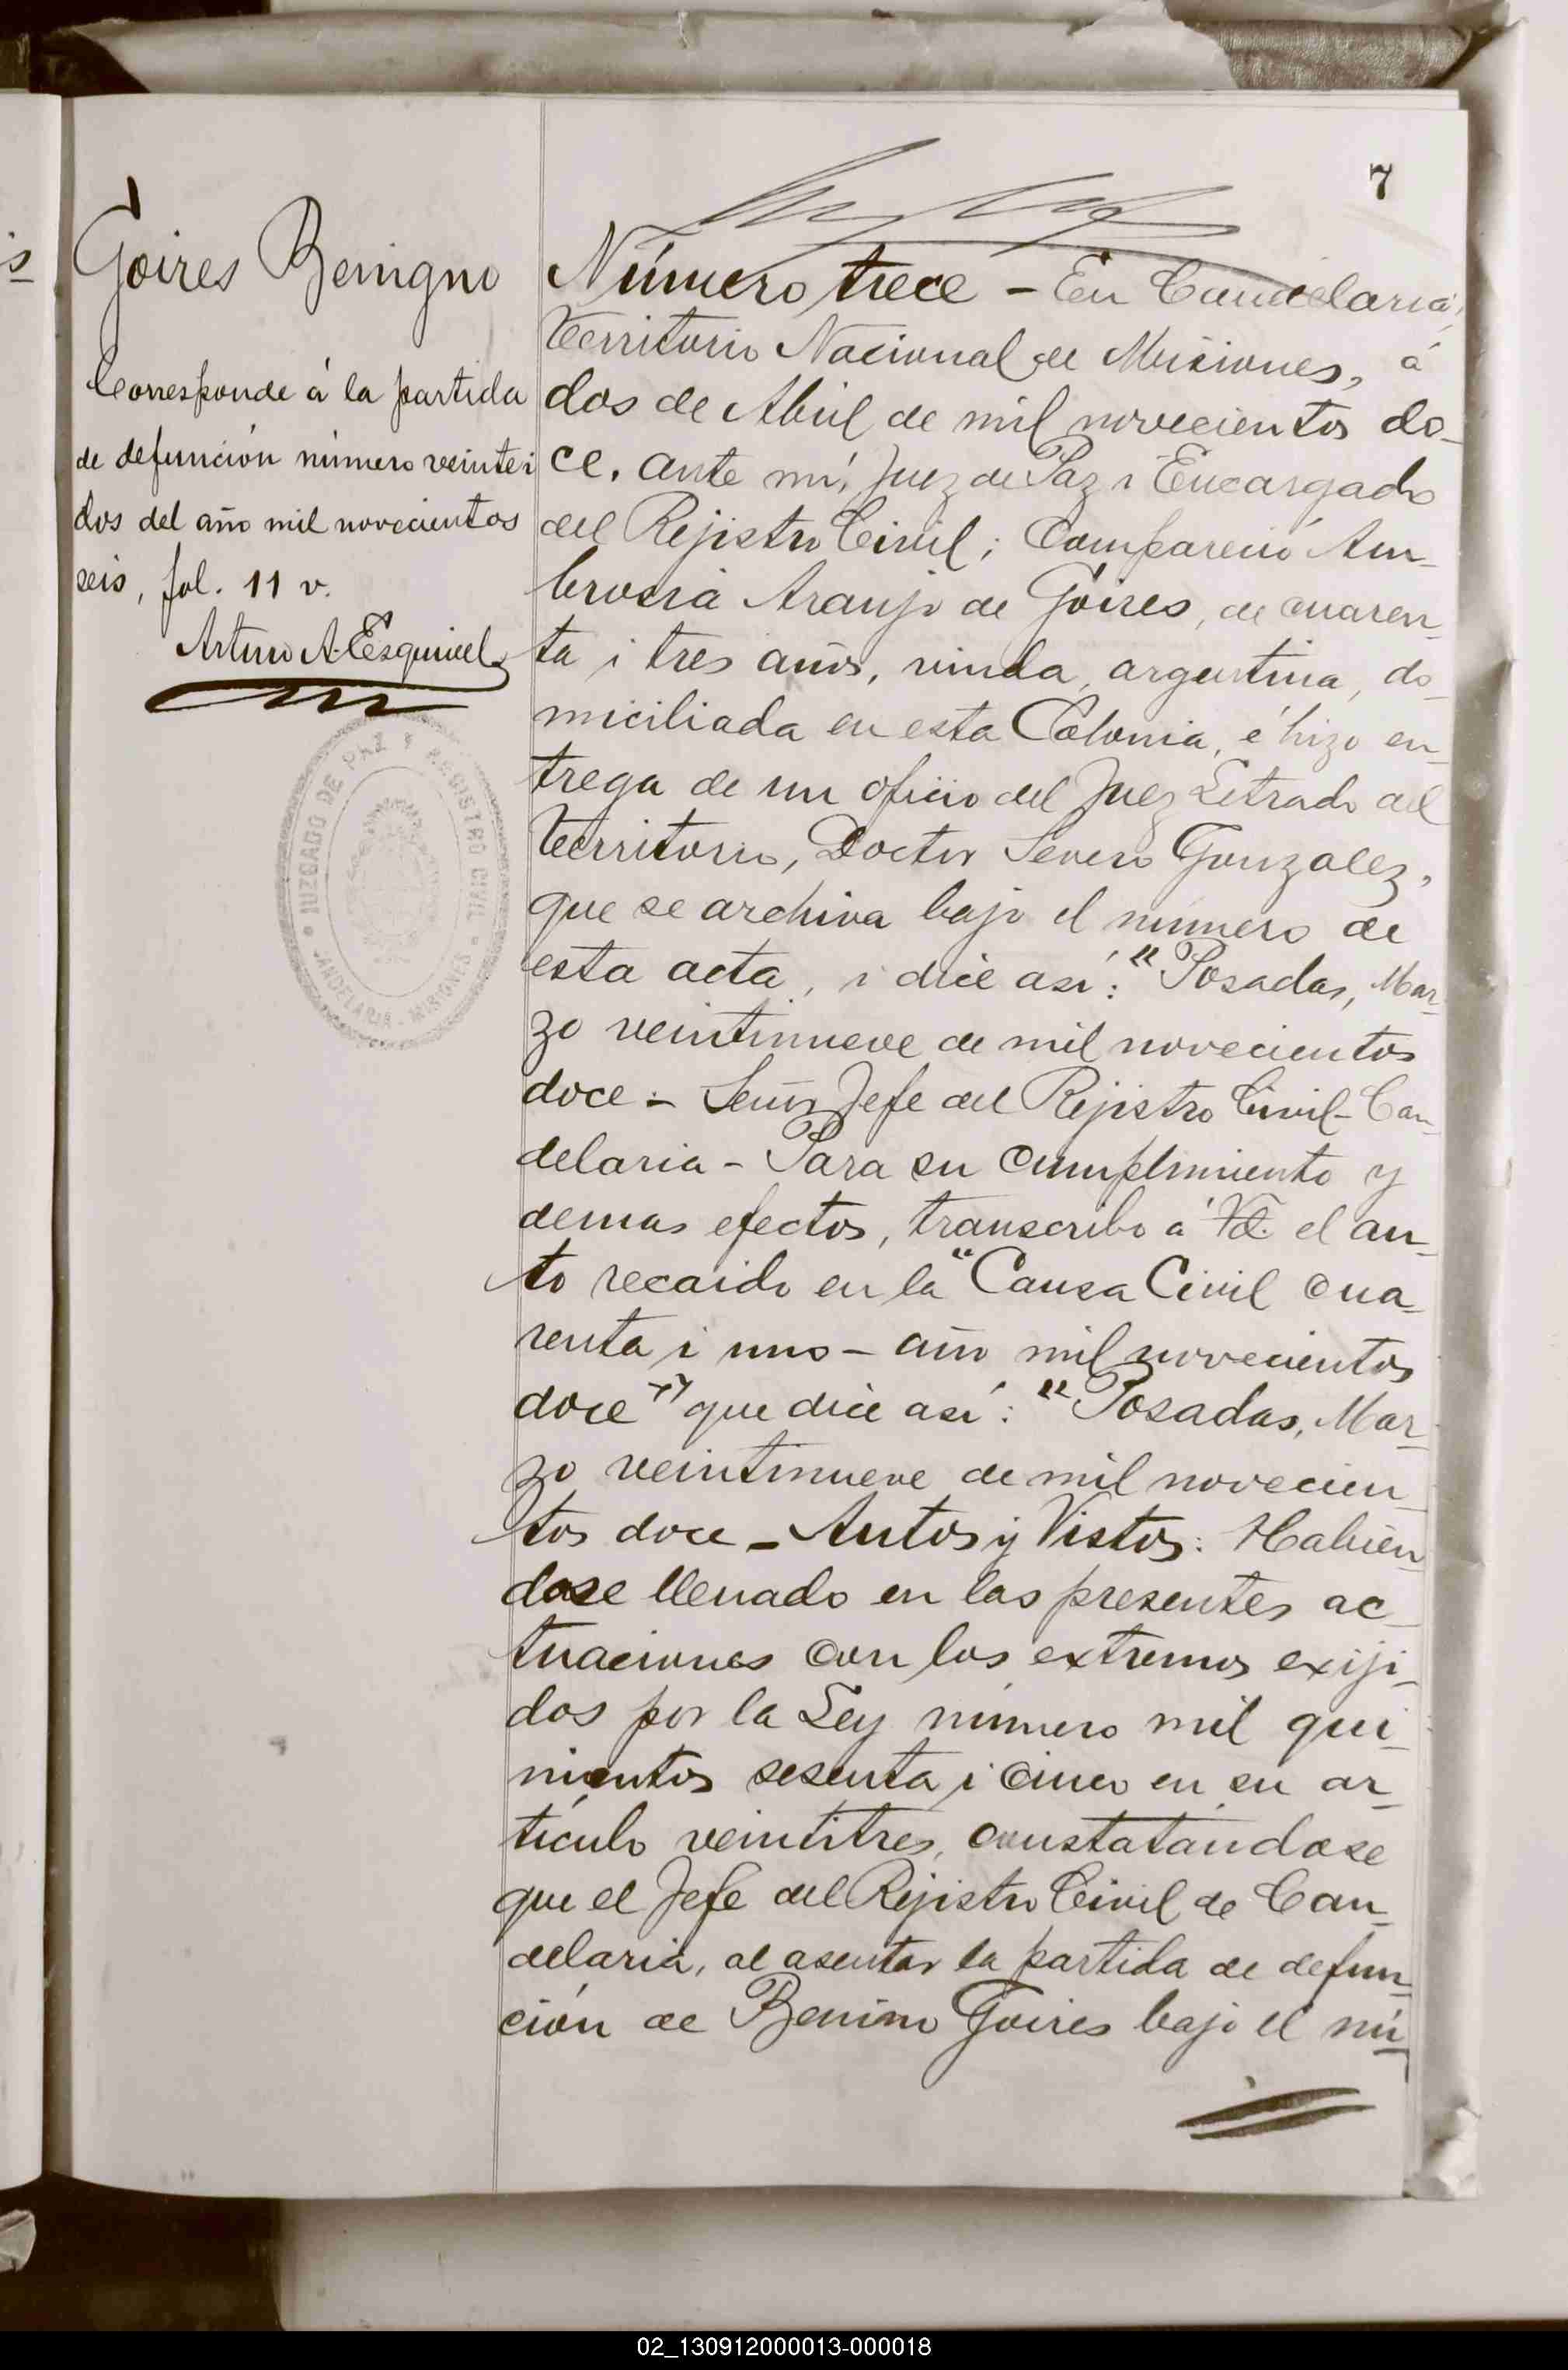 7
s
Goires Benigno
Corresponde á la partida
de defunción número veinte i
dos del año mil novecientos
seis, fol. 11 v.
Arturo A. Esquivel
JUZGADO DE PAZ Y REGISTRO CIVIL
CANDELARIA - MISIONES
Número trece - En Candelaria,
Territorio Nacional de Misiones, á
dos de Abril de mil novecientos do-
ce, ante mí, Juez de Paz i Encargado
del Rejistro Civil; Compareció Am-
brosia Araujo de Goires, de cuaren-
ta i tres años, viuda, argentina, do-
miciliada en esta Colonia, é hizo en-
trega de un oficio del Juez Letrado del
Territorio, Doctor Severo Gonzalez,
que se archiva bajo el número de
esta acta, i dice así: "Posadas, Mar-
zo veintinueve de mil novecientos
doce - Señor Jefe del Rejistro Civil - Can-
delaria - Para su cumplimiento y
demas efectos, transcribo á Vd. el au-
to recaido en la "Causa Civil cua-
renta i uno - año mil novecientos
doce" que dice así: "Posadas, Mar-
zo veintinueve de mil novecien-
tos doce - Autos y Vistos: Habién-
dose llenado en las presentes ac-
tuaciones con los extremos exiji-
dos por la Ley número mil qui-
nientos sesenta i cinco en su ar-
tículo veintitres, constatándose
que el Jefe del Rejistro Civil de Can-
delaria, al asentar la partida de defun-
ción de Benino Goires bajo el nú-
02_130912000013-000018